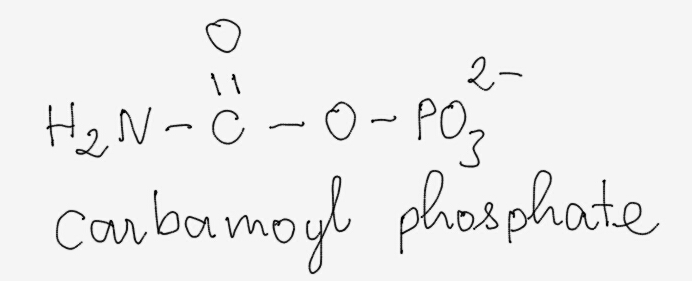 O
||
H₂N – C – O – PO₃²⁻
carbamoyl phosphate